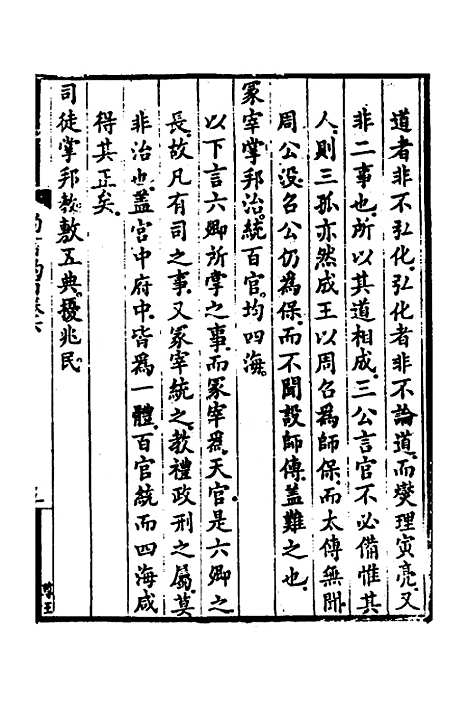 道者非不弘化。弘化者非不論道。而燮理寅亮。又
非二事也。所以其道相成。三公言官不必備惟其
人。則三孤亦然。成王以周召爲師保。而太傅無聞。
周公沒。召公仍爲保。而不聞設師傅。蓋難之也。
冢宰掌邦治。統百官。均四海。
以下言六卿所掌之事。而冢宰爲天官。是六卿之
長。故凡有司之事。又冢宰統之。教禮政刑之屬。莫
非治也。蓋宮中府中。皆爲一體。百官統而四海咸
得其正矣。
司徒掌邦教。敷五典。擾兆民。